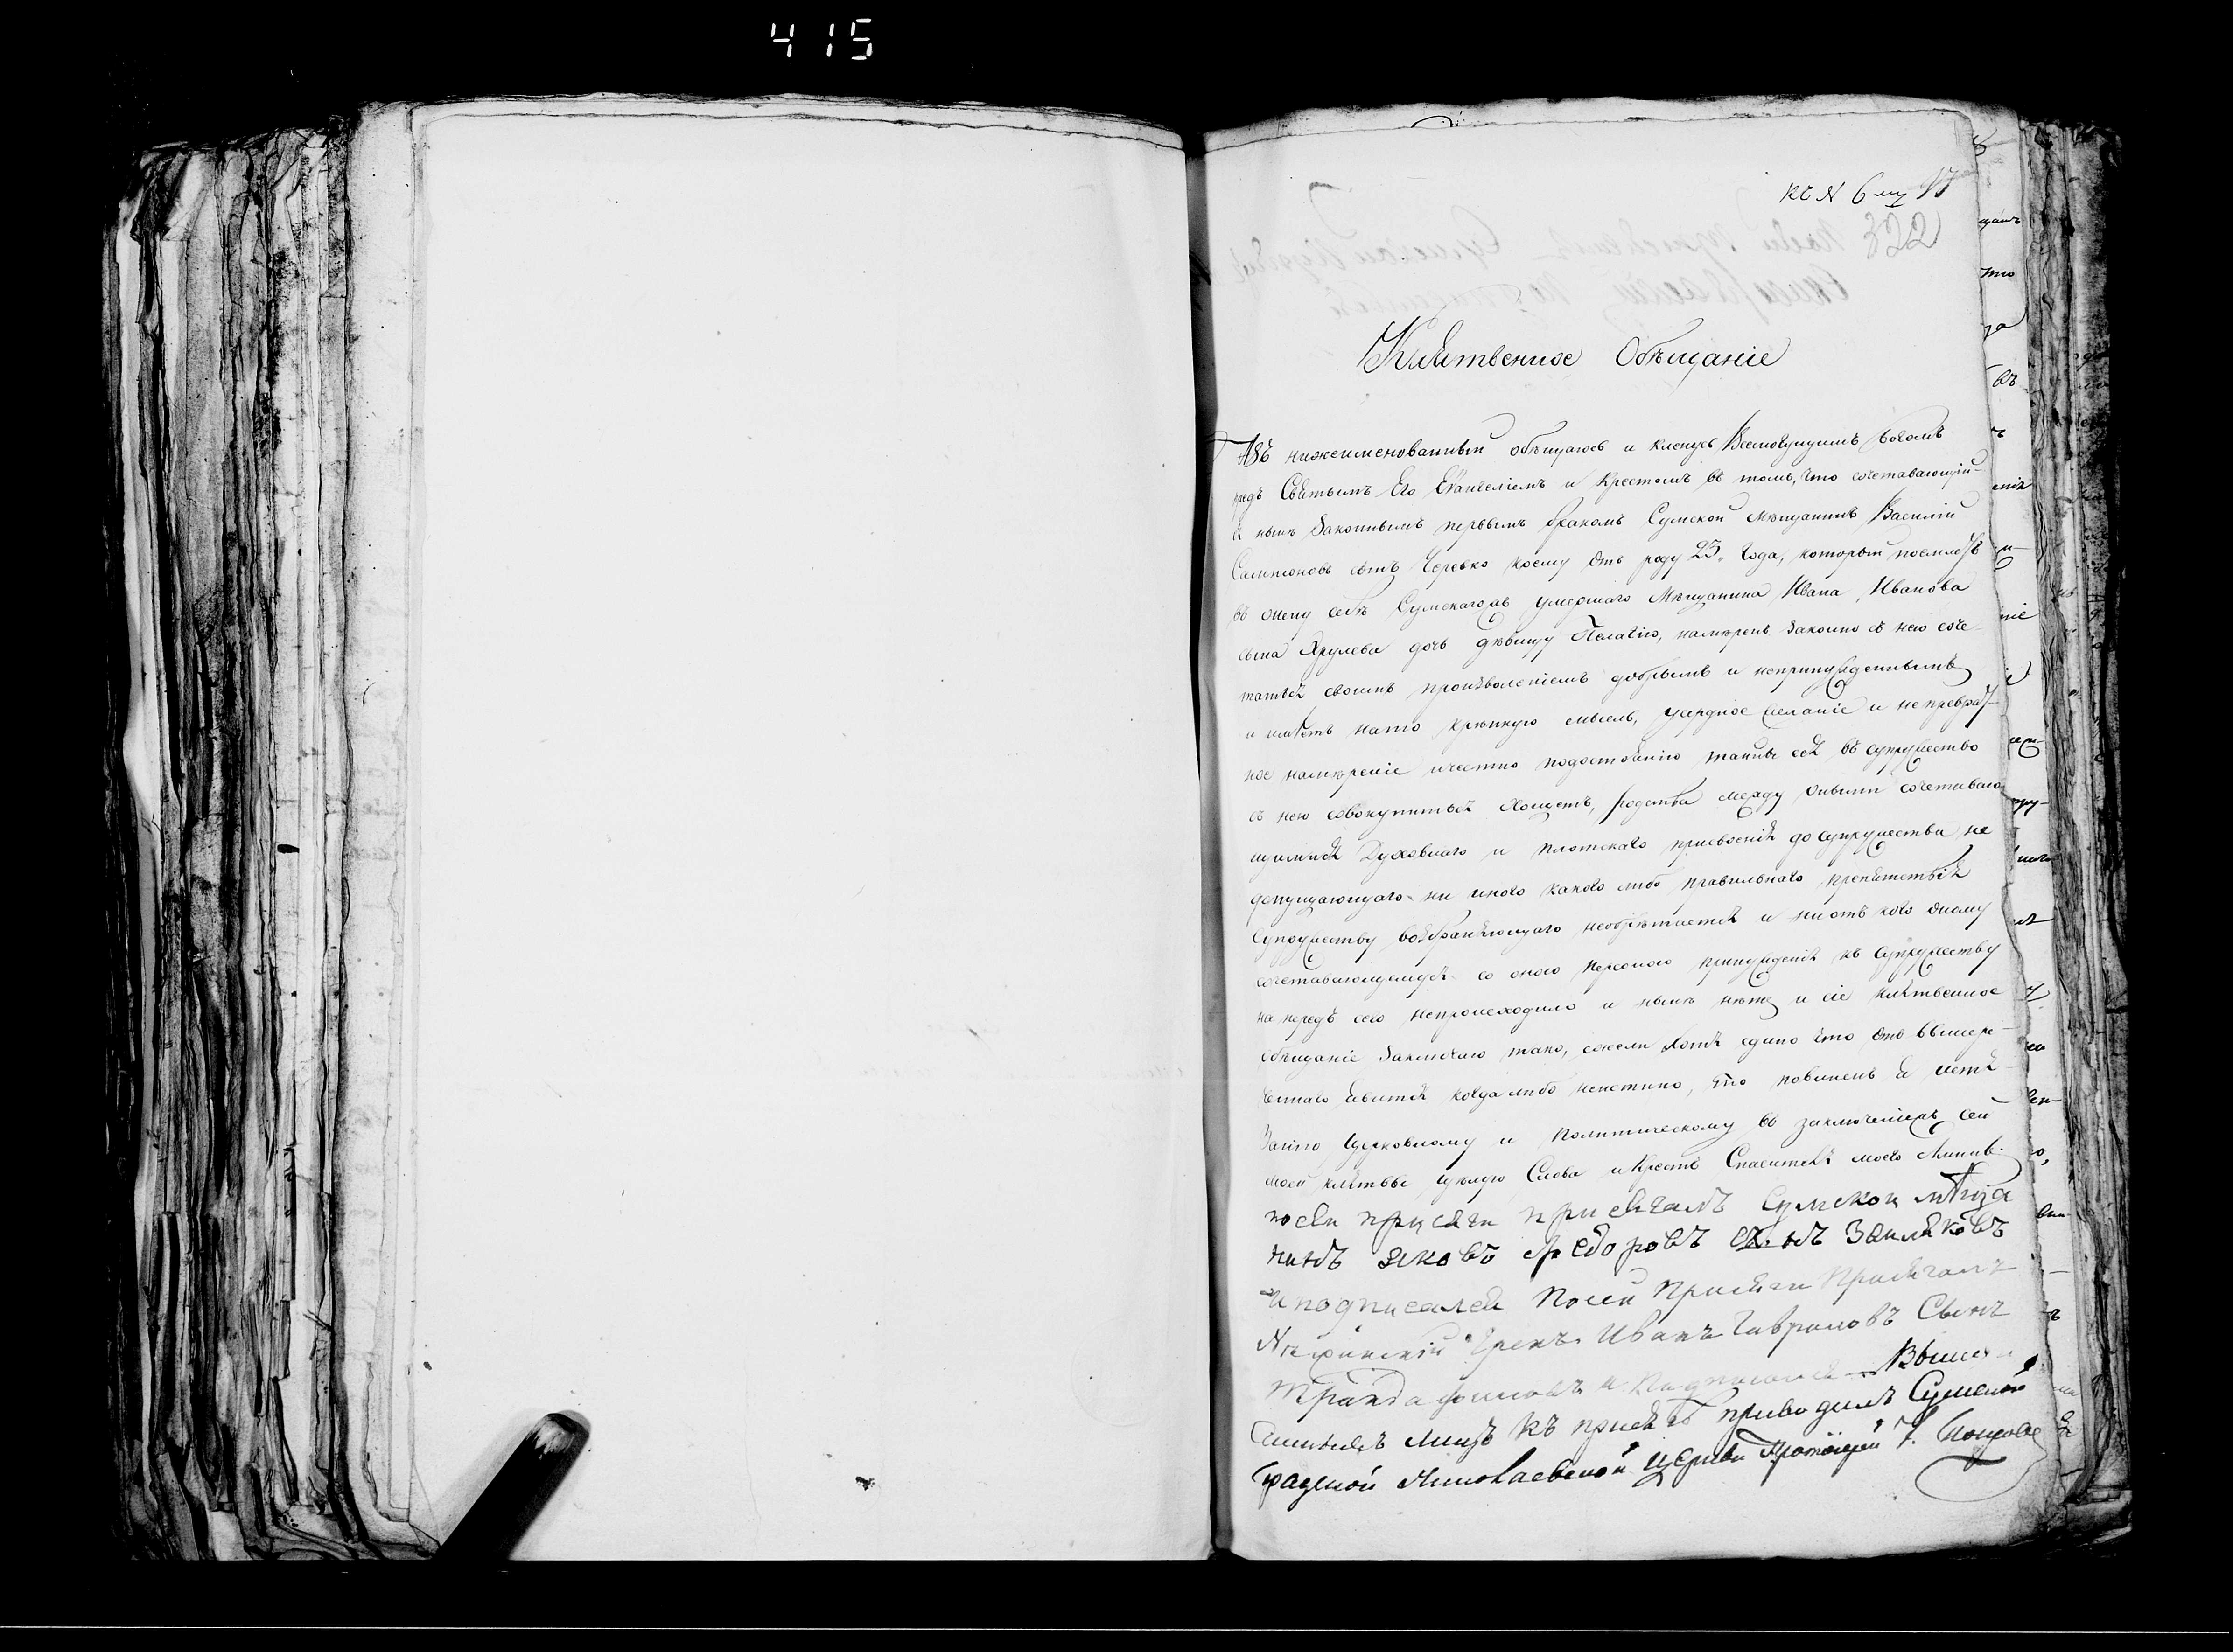 415
къ N 6 му
322
Клятвенное Обѣщаніе
Азъ нижеименованный обѣщаюсь и кленусь Всемогущимъ богомъ
предъ Святымъ Его Евангеліемъ и Крестомъ въ томъ, что сочетавающій
ся нынѣ Законнымъ первымъ бракомъ Сумской мѣщанинъ Василій
Сампсоновъ сынъ Черевко коему отъ роду 25. года, который поемлетъ
въ жену себѣ умершаго Мѣщанина Ивана Иванова
сына дочь дѣвицу Пелагію, намѣренъ законно съ нею соче
татся своимъ произволеніемъ добрымъ и непринужденнымъ
и имѣетъ нато крѣпкую мысль, усердное желаніе и непреврат-
ное намѣреніе ичестно подостоянію тайны сея въ супружество
съ нею совокупиться хощетъ, родства между оными сочетаваю
щимися Духовнаго и плотскаго присвоенія до супружества не
допущающаго ни инаго какого либо правильнаго препятствія
супружеству возбраняющаго необрѣтается и ни отъ кого оному
сочетавающемуся со оною персоною принужденія къ супружеству
на передъ сего непроисходило и нынѣ нѣтъ и сіе клятвенное
обѣщаніе заключаю тако, ежели хотя едино что отъ вышере-
ченнаго явится когда либо неистино, то повиненъ я истя-
занію Церковному и Политическому въ заключеніеже сей
моей клятвы цѣлую Слова иКрестъ Спасителя моего Аминь.
по сей присяги присягалъ Сумской мѣща
нинъ яковъ федоровъ сынъ
и подписался Посей Присяги Присягалъ
Нѣжинскій Грекъ Иванъ Гавриловъ Сынъ
и Подписался Выше
лицъ къ присягѣ приводилъ Сумской
градской Николаевской Церкви Протоіерей